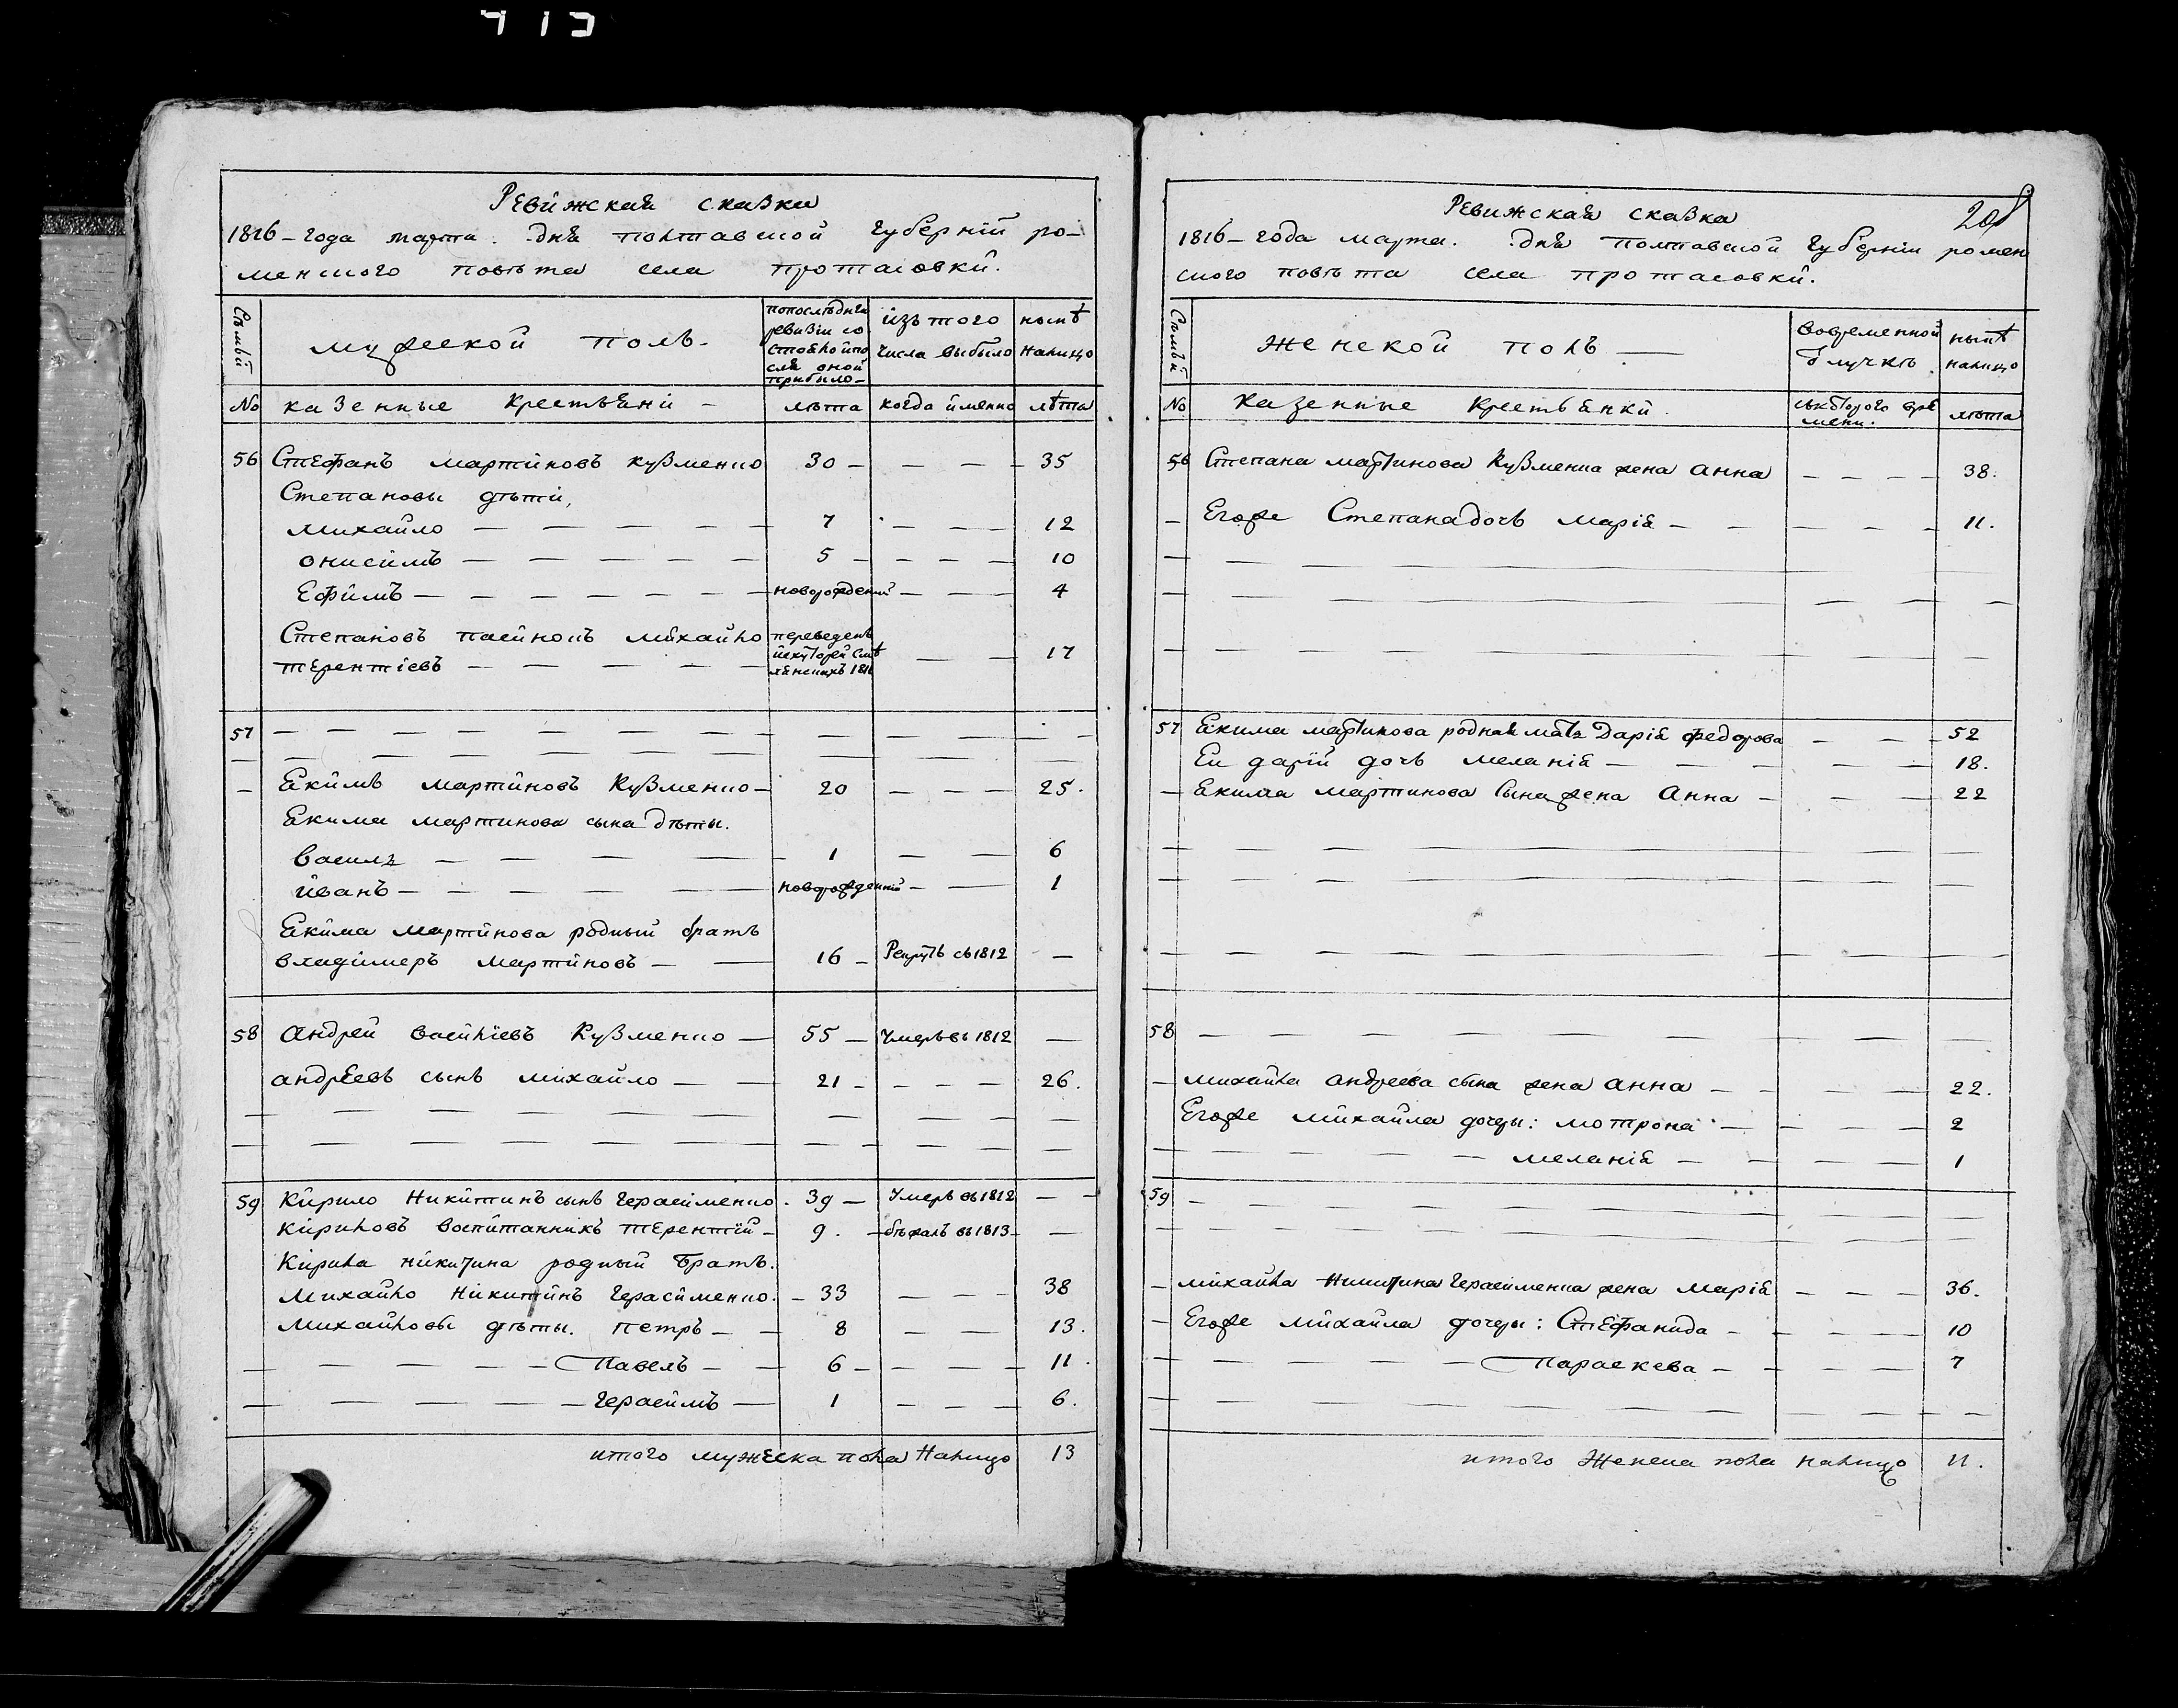 Ревижская сказка
1816 – года марта . дня полтавской губерній ро–
менского повѣта села протасовки.
Сѣмьй
мужеской полъ.
попослѣднѣй ревизіи со стояло ипо слѣ оной прибыло –
изъ того числа выбыло
нынѣ налицо
№ казенные крестьяни –
лѣта
когда именно
лѣта
56 Стефанъ мартиновъ кузменко 30 – – – – 35
Степановы дѣти,
михайло – – – – – 7 – – – 12
онисимъ – – – – – 5 – – – – 10
Ефимъ – – – – – – новорожденій – – – 4
Степановъ пасинокъ михайло переведенъ
терентіевъ – – – – – 17
57 – – – – – – – – – –
Екимъ мартиновъ кузменко – 20 – – – 25.
Екима мартинова сына дѣты.
василь – – – – 1 – – 6
иванъ – – – – новорожденній – – 1
Екима мартинова родный братъ
владимеръ мартиновъ – – 16 – Рекрутъ съ 1812 –
58 андрей василіевъ кузменко – 55 – умеръ въ 1812 –
андреевъ сынъ михайло – – 21 – – – – 26.
– – – – – – – – – –
– – – – – – – – – –
59 Кирило Никитинъ сынъ герасименко . 39 – умеръ въ 1812 – –
кириловъ воспитанникъ терентій – 9 . – бѣжалъ въ 1813 – –
Кирила никитина родный братъ.
Михайло Никитинъ герасименко. – 33 – – – 38
Михайловы дѣты. петръ – – 8 – – 13.
– – – – – Павелъ – – 6 – – – – 11.
– – – – – герасимъ – 1 – – – 6.
итого мужеска пола налицо 13
Ревижская сказка
20
1816 – года марта. дня полтавской губерніи ромен
ского повѣта села протасовки.
Сѣмьй
женской полъ –
вовременной отлучкѣ
нынѣ налицо
№ казенные крестьянки.
съкоторого времени.
лѣта
56 Степана мартинова кузменка жена анна – – – – 38.
– Егоже Степана дочь марія – – – – – 11.
– – – – – – – – –
– – – – – – – – – –
– – – – – – – – –
57 Екима мартинова родная мать Дарія федорова – – – 52
Еи дарій дочь меланія – – – – – 18.
– Екима мартинова сына жена анна – – – 22
– – – – – – – – – –
– – – – – – – – – –
– – – – – – – – – –
58 – – – – – – – – –
– михайла андреева сына жена анна – – – 22.
Егоже михайла дочеры: мотрона – – – – 2
– – – – – – меланія – – – – 1
59 – – – – – – – – –
– – – – – – – – –
– михайла никитина герасименка жена марія – – – 36.
– Егоже михайла дочеры: Стефанида – – – – 10
– – – – – – Параскева – – – – 7
– – – – – – – – – –
итого женска пола налицо 11.